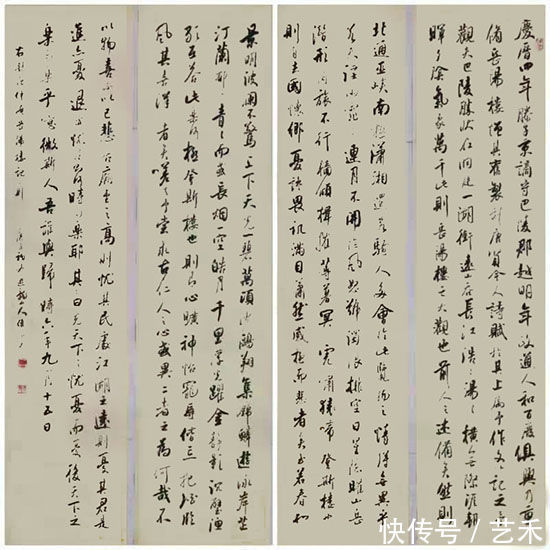 慶曆四年滕子京謫守巴陵郡越明年政通人和百廢俱興乃重
脩岳陽樓增其舊製刻唐賢今人詩賦於其上屬予作文以記之予
觀夫巴陵勝狀在洞庭一湖銜遠山吞長江浩浩湯湯橫無際涯朝
暉夕陰氣象萬千此則岳陽樓之大觀也前人之述備矣然則
北通巫峽南極瀟湘遷客騷人多會於此覽物之情得無異乎
若夫淫雨霏霏連月不開陰風怒號濁浪排空日星隱曜山岳
潛形商旅不行檣傾楫摧薄暮冥冥虎嘯猿啼登斯樓也
則有去國懷鄉憂讒畏譏滿目蕭然感極而悲者矣至若春和
景明波瀾不驚上下天光一碧萬頃沙鷗翔集錦鱗游泳岸芷
汀蘭郁郁青青而或長煙一空皓月千里浮光躍金靜影沉璧漁
歌互答此樂何極登斯樓也則有心曠神怡寵辱偕忘把酒臨
風其喜洋洋者矣嗟夫予嘗求古仁人之心或異二者之為何哉不
以物喜不以己悲居廟堂之高則憂其民處江湖之遠則憂其君是
進亦憂退亦憂然則何時而樂耶其必曰先天下之憂而憂後天下之
樂而樂乎噫微斯人吾誰與歸時六年九月十五日
右錄范仲淹岳陽樓記
快传号／艺禾